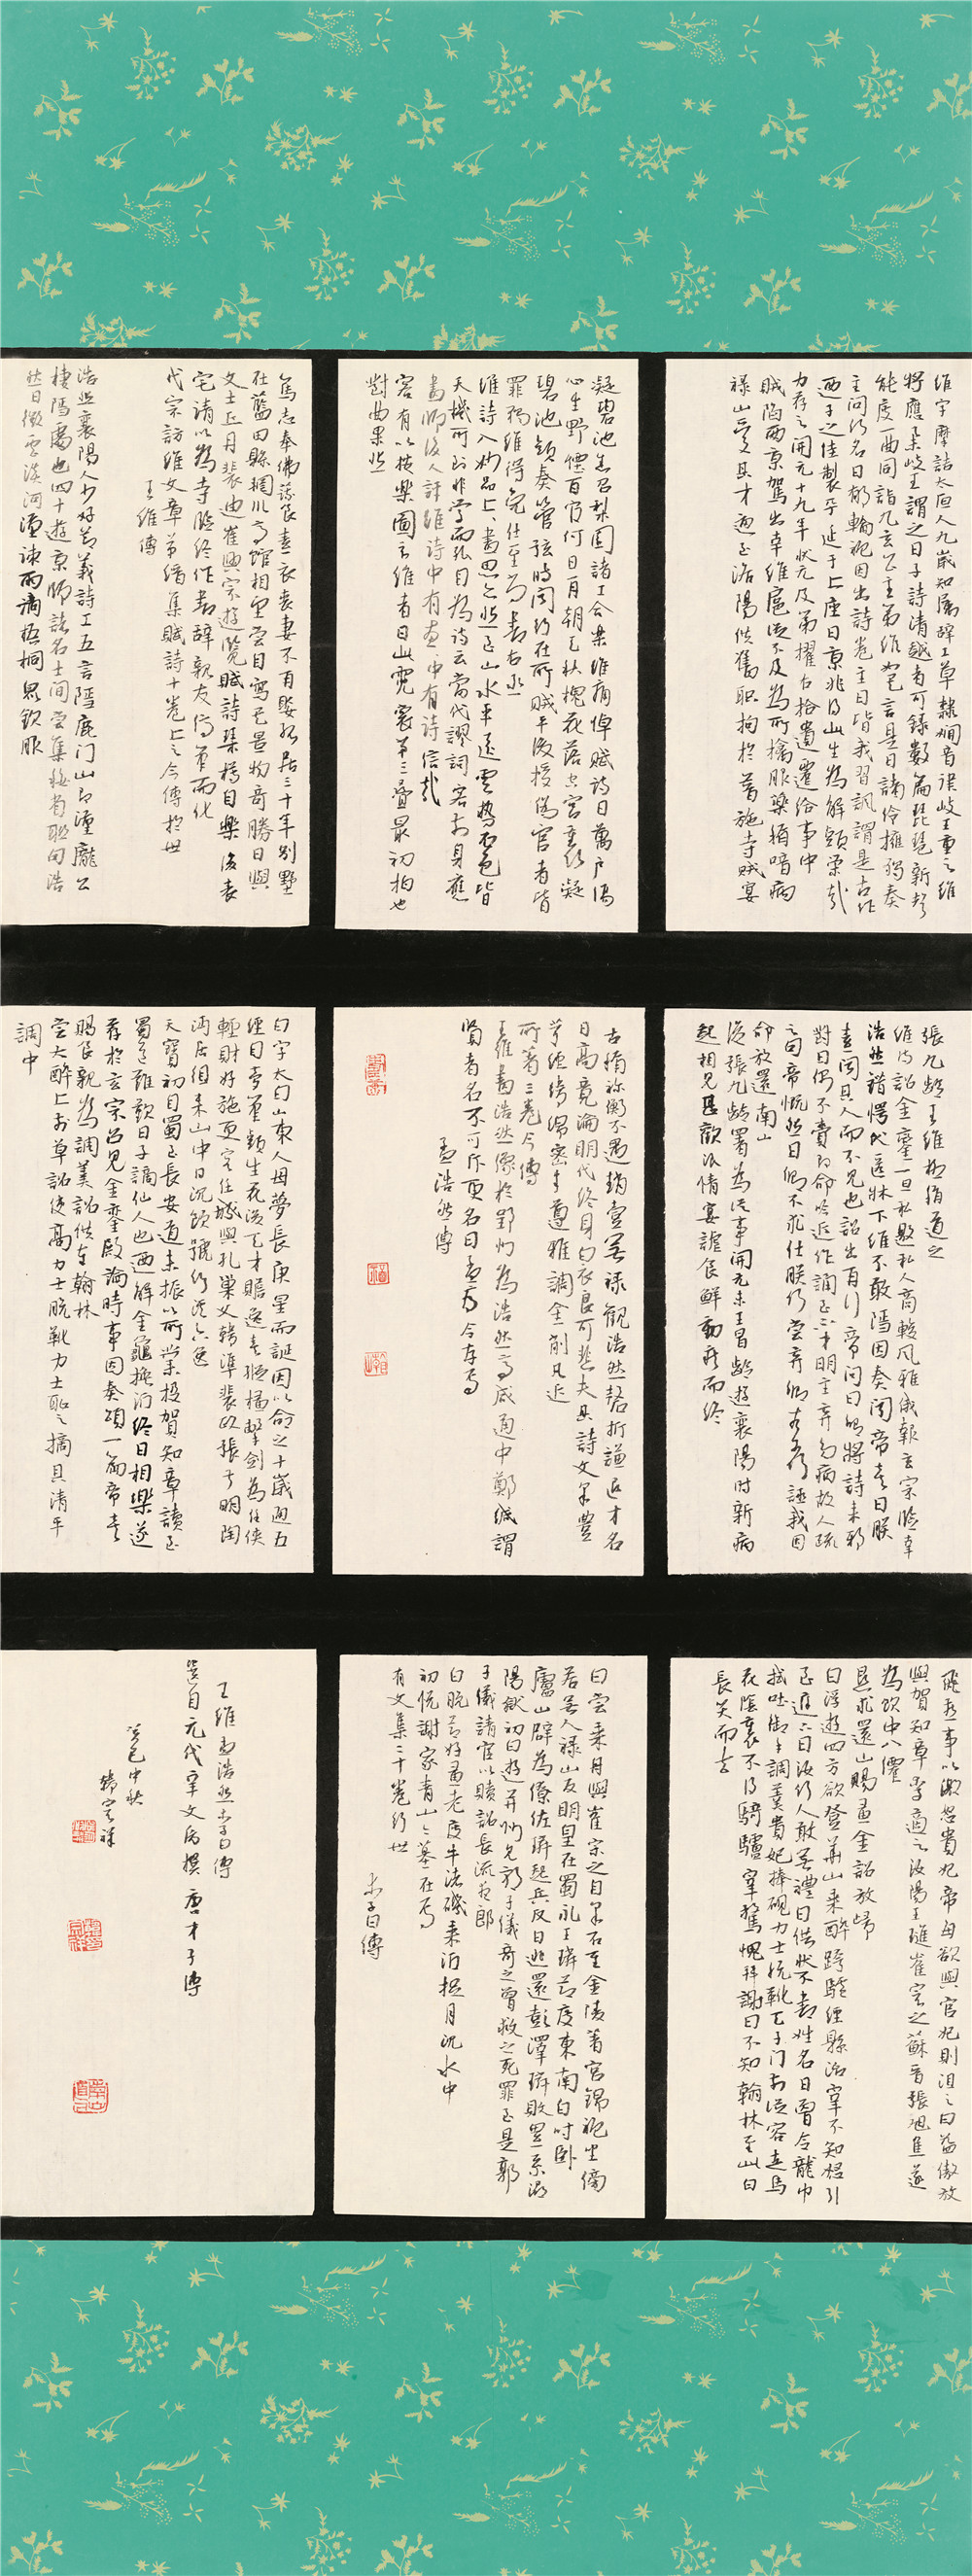 維字摩詰太原人九歲知屬辭工草隸嫻音律岐王重之維
將應舉岐王謂之曰子詩清越者可錄數篇琵琶新聲
能度一曲同詣九公主第維如其言是日諸伶擁獨奏
主問何名曰鬱輪袍因出詩卷主曰皆我習諷謂是古作
迺子之佳製乎延于上座曰京兆得此生為解頭榮哉
力荐之開元十九年狀元及第擢右拾遺遷給事中
賊陷兩京駕出幸維扈從不及為所擒服藥稱喑病
祿山愛其才逼至洛陽供舊職拘於普施寺賊宴
凝碧池悉召梨園諸工合樂維痛悼賦詩曰萬戶傷
心生野煙百官何日再朝天秋槐花落空宮裏凝
碧池頭奏管弦時聞行在所賊平後授偽官者皆
罪獨維得免仕至尚書右丞
維詩入妙品上上畫思亦然至山水平遠雲勢石色皆
天機所到非學而能自為詩云當代謬詞客前身應
畫師後人評維詩中有畫畫中有詩信哉
客有以按樂圖示維者曰此霓裳第三疊最初拍也
對曲果然
篤志奉佛蔬食素衣喪妻不再娶孤居三十年別墅
在藍田縣輞川亭館相望嘗自寫其景物奇勝日與
文士丘丹裴迪崔興宗遊覽賦詩琴樽自樂後表
宅請以為寺臨終作書辭親友停筆而化
代宗訪維文章弟縉集賦詩十卷上之今傳於世
王維傳
浩然襄陽人少好節義詩工五言隱鹿門山即漢龐公
棲隱處也四十遊京師諸名士間嘗集秘省聯句浩
然曰微雲淡河漢疎雨滴梧桐眾欽服
張九齡王維極稱道之
維待詔金鑾一旦私邀私人商較風雅俄報玄宗臨幸
浩然錯愕伏匿牀下維不敢隱因奏聞帝喜曰朕
素聞其人而不見也詔出再拜帝問曰卿將詩來耶
對曰偶不賫即命吟近作誦至不才明主棄多病故人疏
之句帝慨然曰卿不求仕朕何嘗棄卿奈何誣我因
命放還南山
後張九齡署為從事開元末王昌齡遊襄陽時新病
起相見甚歡浪情宴謔食鮮動疾而終
古稱禰衡不遇趙壹無祿觀浩然磬折謙退才名
日高竟淪明代終身白衣良可悲夫其詩文采豐
茸經緯綿密半遵雅調全削凡近
所著三卷今傳
王維畫浩然像於郢州為浩然亭咸通中鄭諴謂
賢者名不可斥更名曰孟亭今存焉
孟浩然傳
白字太白山東人母夢長庚星而誕因以命之十歲通五
經自夢筆頭生花後天才贍逸喜縱橫擊劍為任俠
輕財好施更客任城與孔巢父韓準裴政張叔明陶
沔居徂徠山中日沉飲號竹溪六逸
天寶初自蜀至長安道未振以所業投賀知章讀至
蜀道難歎曰子謫仙人也迺解金龜換酒終日相樂遂
荐於玄宗召見金鑾殿論時事因奏頌一篇帝喜
賜食親為調羹詔供奉翰林
嘗大醉上前草詔使高力士脫靴力士恥之摘其清平
調中
飛燕事以激怒貴妃帝每欲與官妃則沮之白益傲放
與賀知章李適之汝陽王璡崔宗之蘇晉張旭焦遂
為飲中八僊
懇求還山賜黃金詔放歸
白浮遊四方欲登華山乘醉跨驢經縣治宰不知怒引
至庭下曰汝何人敢無禮白供狀不書姓名曰曾令龍巾
拭吐御手調羹貴妃捧硯力士脫靴天子門前從容走馬
花陰裏不得騎驢宰驚愧拜謝曰不知翰林至此白
長笑而去
白嘗乘月與崔宗之自采石至金陵著宮錦袍坐傍
若無人祿山反明皇在蜀永王璘節度東南白時臥
廬山辟為僚佐璘起兵反白逃還彭澤璘敗累系潯
陽獄初白遊并州見郭子儀奇之曾救之死罪至是郭
子儀請官以贖詔長流夜郎
白晚節好黃老度牛渚磯乘酒捉月沉水中
初悅謝家青山今墓在焉
有文集二十卷行世
李白傳
王維孟浩然李白傳
選自元代辛文房撰唐才子傳
癸巳中秋